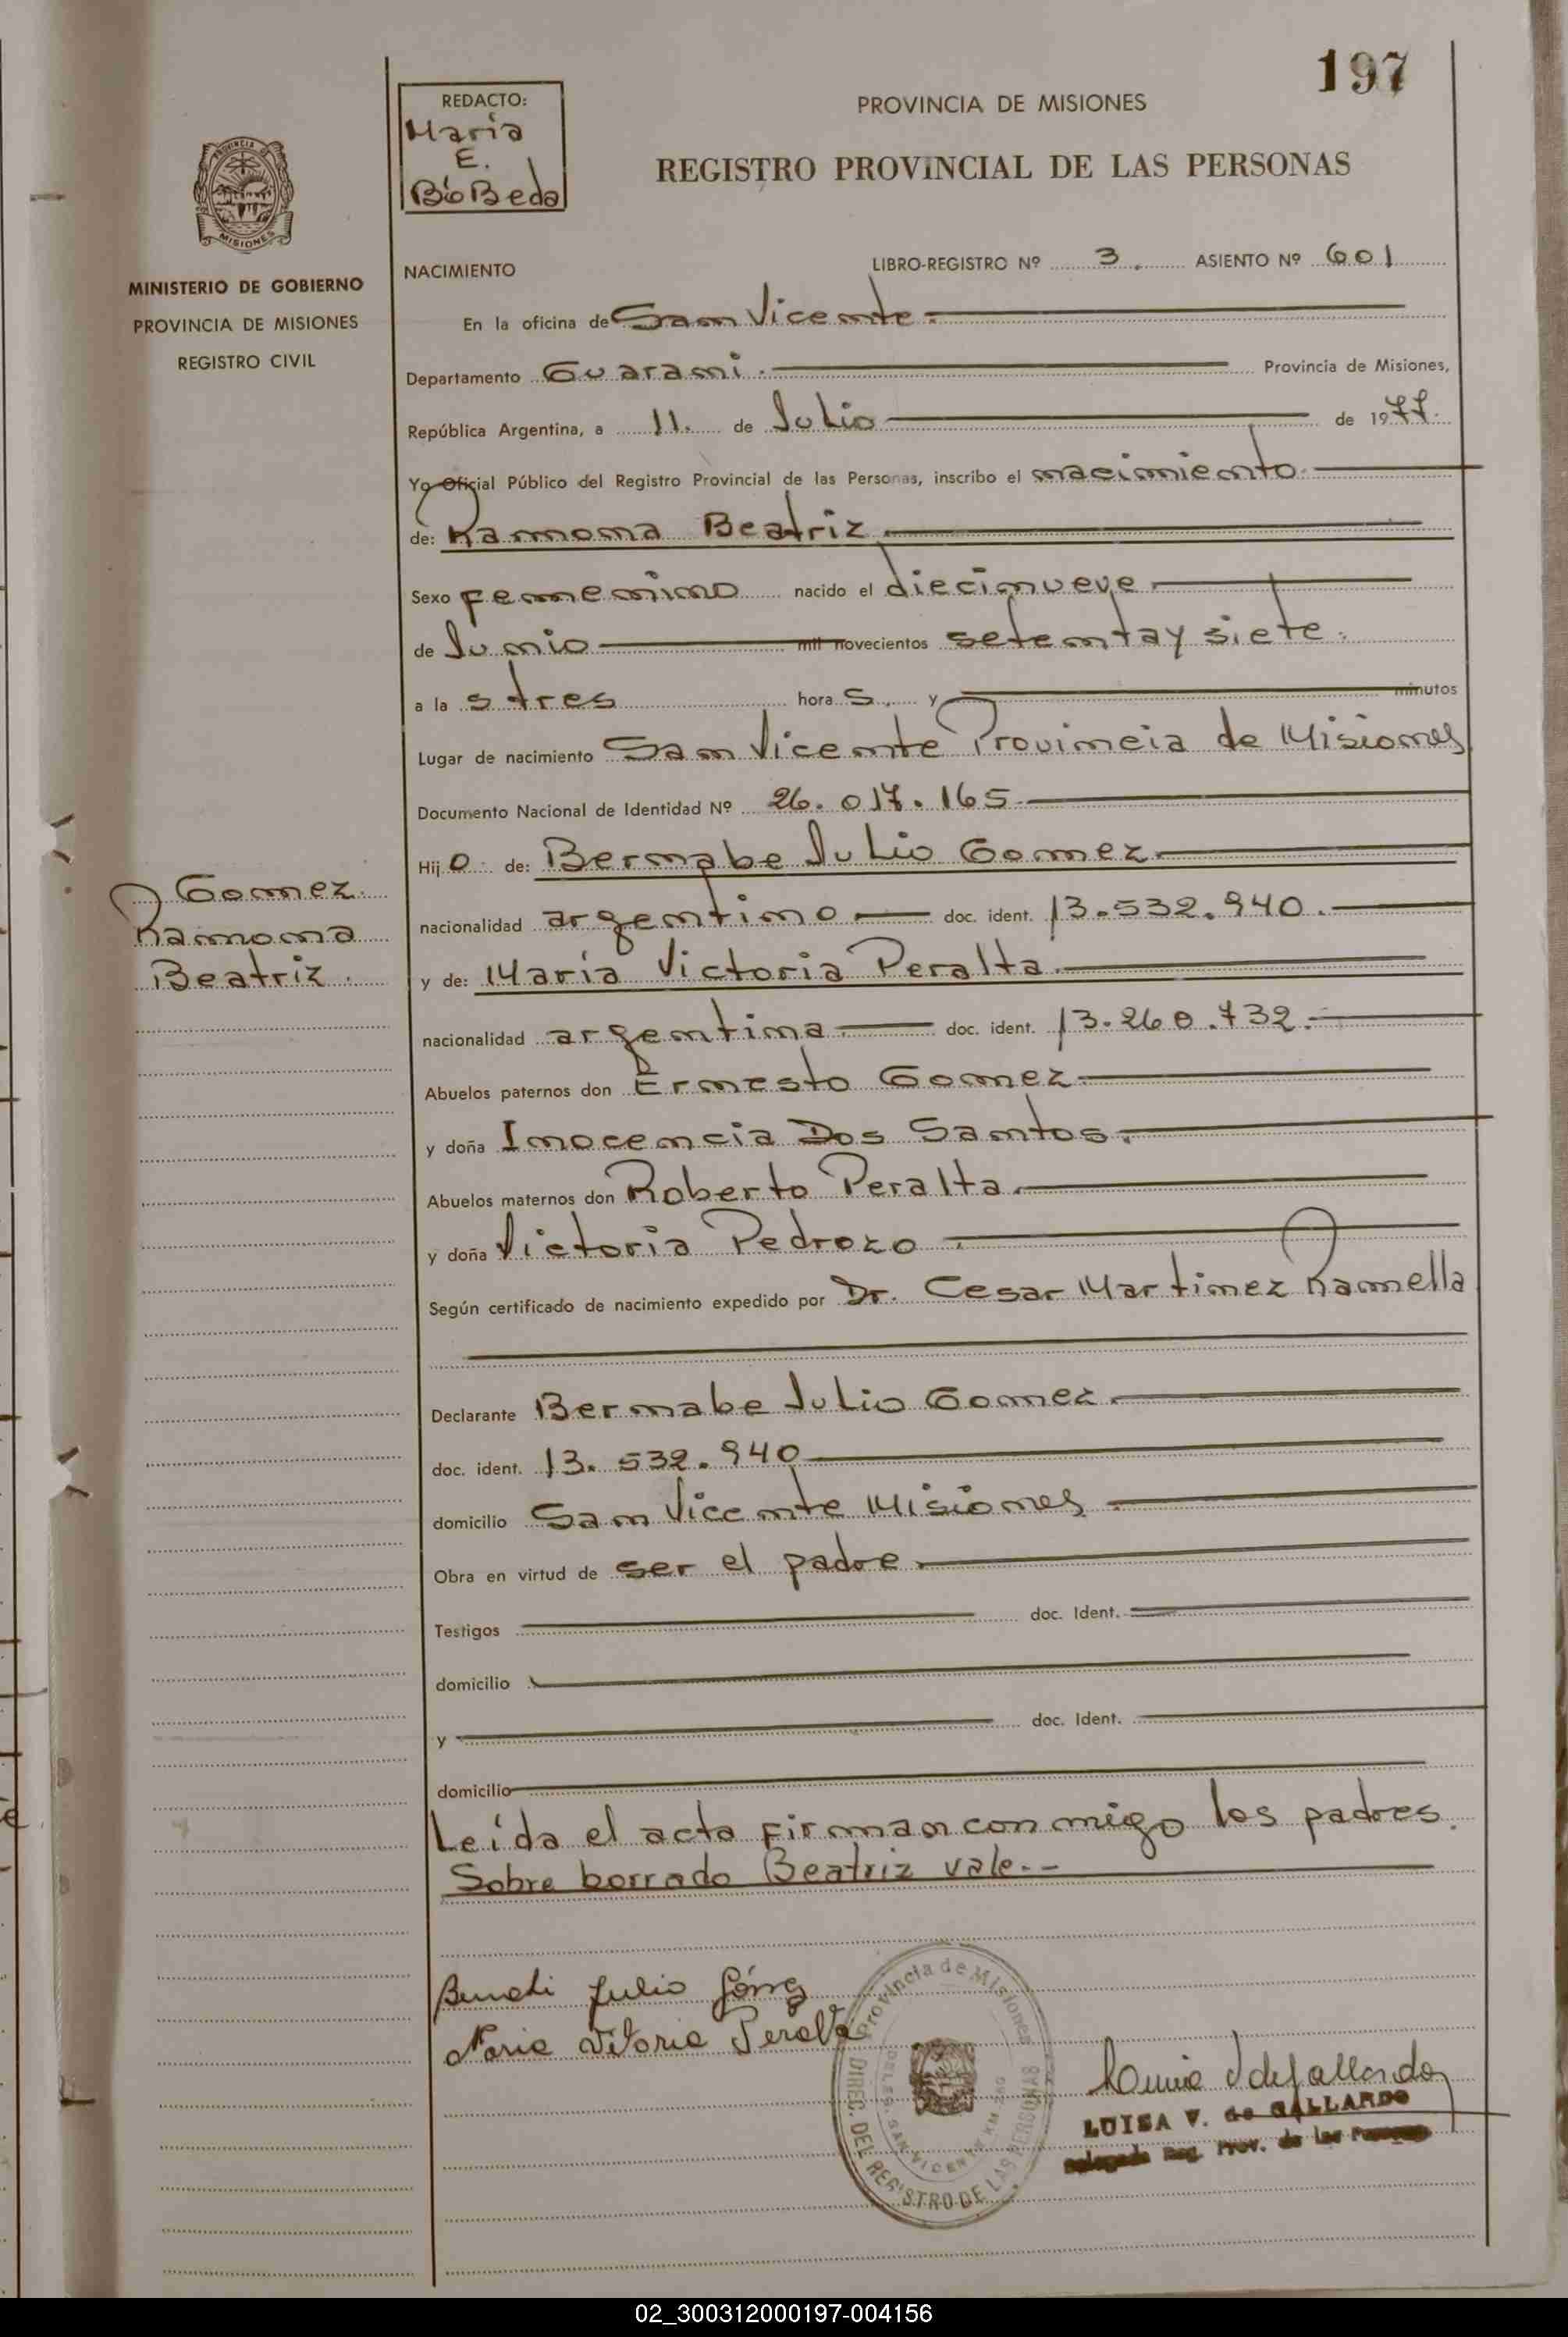 197
REDACTO:
Maria
E.
BíoBeda
PROVINCIA DE MISIONES
REGISTRO PROVINCIAL DE LAS PERSONAS
MISIONES
MINISTERIO DE GOBIERNO
PROVINCIA DE MISIONES
REGISTRO CIVIL
NACIMIENTO LIBRO-REGISTRO Nº 3. ASIENTO Nº 601
En la oficina de San Vicente.
Departamento Guarani. Provincia de Misiones,
República Argentina, a 11. de Julio de 1977.
Yo Oficial Público del Registro Provincial de las Personas, inscribo el nacimiento.
de: Ramona Beatriz.
Sexo femenino nacido el diecinueve
de Junio mil novecientos setenta y siete.
a la s tres hora s. y minutos
Lugar de nacimiento San Vicente Provincia de Misiones
Documento Nacional de Identidad Nº 26.017.165
Hij o de: Bernabe Julio Gomez.
nacionalidad argentino doc. ident. 13.532.940.
y de: María Victoria Peralta.
nacionalidad argentina doc. ident. 13.260.732.
Gomez
Ramona
Beatriz.
Abuelos paternos don Ernesto Gomez
y doña Inocencia Dos Santos.
Abuelos maternos don Roberto Peralta.
y doña Victoria Pedrozo
Según certificado de nacimiento expedido por Dr. Cesar Martinez Ramella
Declarante Bernabe Julio Gomez.
doc. ident. 13.532.940
domicilio San Vicente Misiones
Obra en virtud de ser el padre.
Testigos doc. Ident.
domicilio
y doc. Ident.
domicilio
Leída el acta firman con migo los padres.
Sobre borrado Beatriz vale.-
Julio Gómez
Maria Vitoria Peralta
Provincia de Misiones
DIREC. DEL REGISTRO DE LAS PERSONAS
SAN VICENTE KM
LUISA V. de GALLARDO
Delegada Reg. Prov. de las Personas
02_300312000197-004156